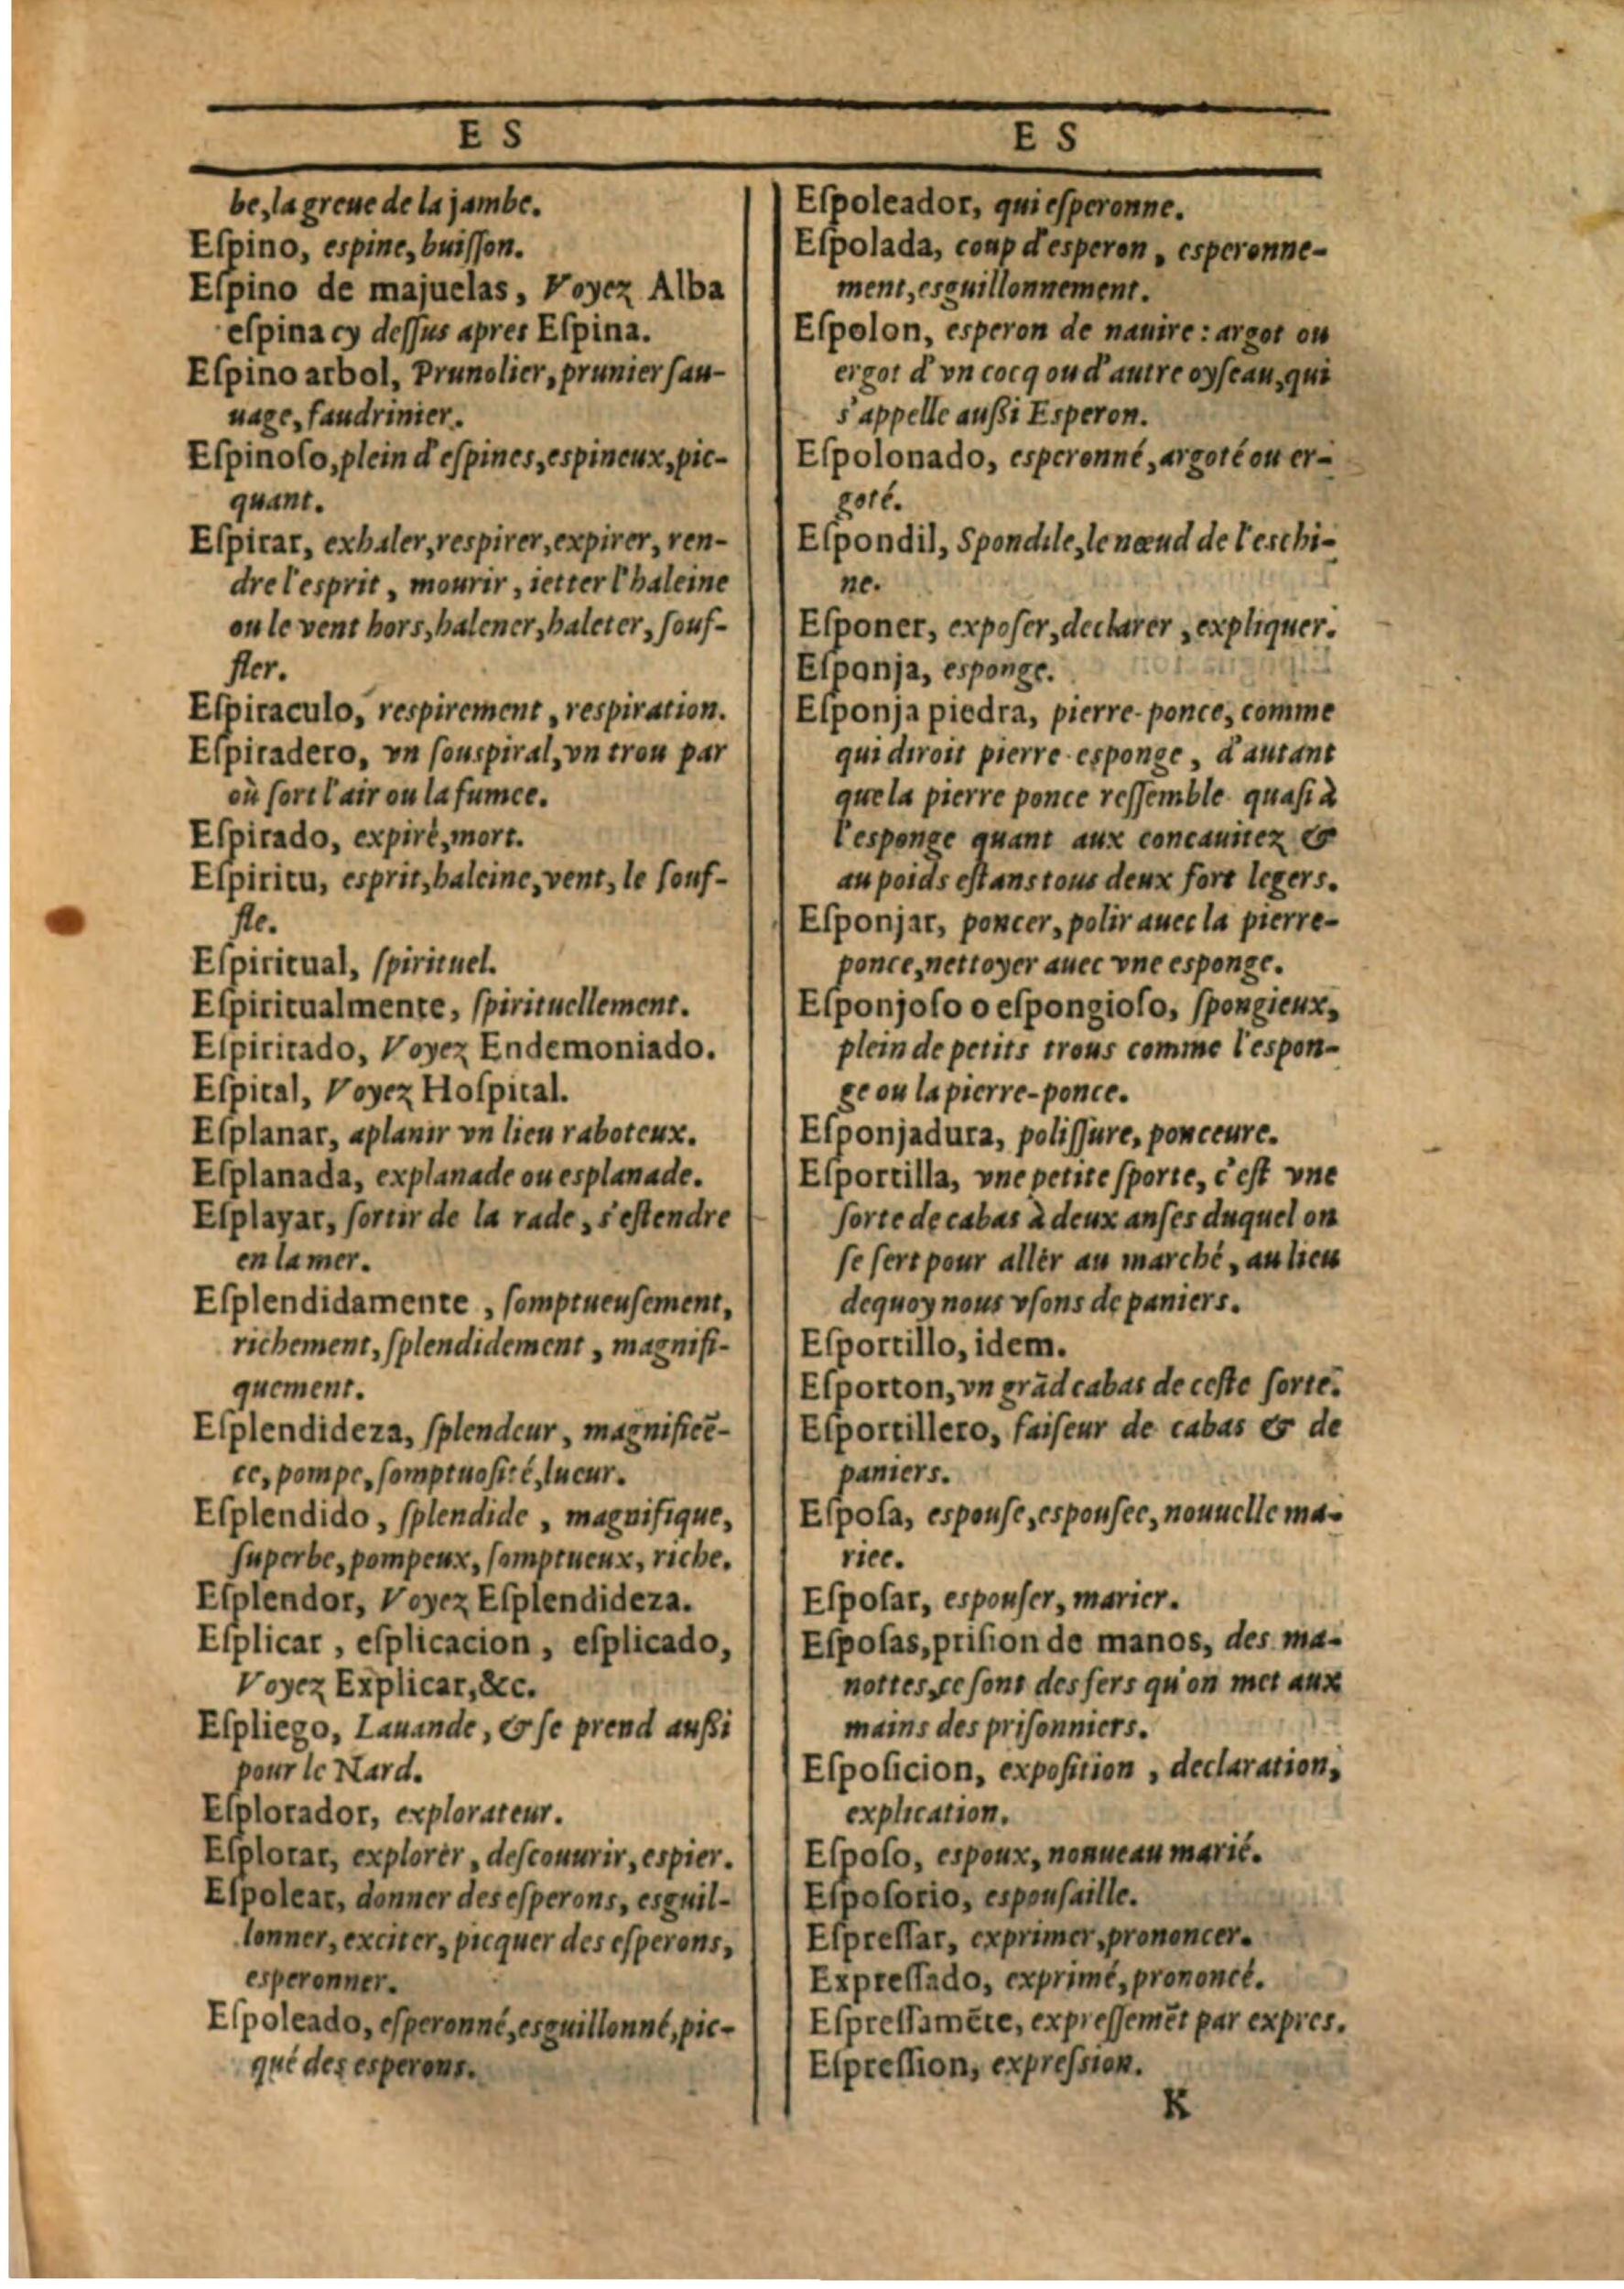 E S
be, la greue de la jambe.
Eſpino, espine, buiſſon.
Eſpino de majuelas, Voyez Alba
eſpina cy deſſus apres Eſpina.
Eſpino arbol, Prunolier, prunier ſau-
uage, ſaudrinier.
Eſpinoſo, plein d'eſpines, espineux, pic-
quant.
Eſpirar, exhaler, respirer, expirer, ren-
dre l'esprit, mourir, ietter l'haleine
ou le vent hors, halener, haleter, ſouf-
fler.
Eſpiraculo, respirement, respiration.
Eſpiradero, vn ſouspiral, vn trou par
où ſort l'air ou la fumee.
Eſpirado, expiré, mort.
Eſpiritu, esprit, haleine, vent, le ſouf-
fle.
Eſpiritual, ſpirituel.
Eſpiritualmente, ſpirituellement.
Eſpiritado, Voyez Endemoniado.
Eſpital, Voyez Hoſpital.
Eſplanar, aplanir vn lieu raboteux.
Eſplanada, explanade ou esplanade.
Eſplayar, ſortir de la rade, s'eſtendre
en la mer.
Eſplendidamente, ſomptueuſement,
richement, ſplendidement, magnifi-
quement.
Eſplendideza, ſplendeur, magnificē-
ce, pompe, ſomptuoſité, lueur.
Eſplendido, ſplendide, magnifique,
ſuperbe, pompeux, ſomptueux, riche.
Eſplendor, Voyez Eſplendideza.
Eſplicar, eſplicacion, eſplicado,
Voyez Explicar, &c.
Eſpliego, Lauande, & ſe prend auſſi
pour le Nard.
Eſplorador, explorateur.
Eſplorar, explorer, deſcouurir, espier.
Eſpolear, donner des eſperons, esguil-
lonner, exciter, picquer des eſperons,
esperonner.
Eſpoleado, eſperonné, esguillonné, pic-
qué des esperons.
E S
Eſpoleador, qui eſperonne.
Eſpolada, coup d'esperon, esperonne-
ment, esguillonnement.
Eſpolon, esperon de nauire: argot ou
ergot d'vn cocq ou d'autre oyſeau, qui
s'appelle auſſi Esperon.
Eſpolonado, esperonné, argoté ou er-
goté.
Eſpondil, Spondile, le nœud de l'eschi-
ne.
Eſponer, expoſer, declarer, expliquer.
Eſponja, esponge.
Eſponja piedra, pierre-ponce, comme
qui diroit pierre esponge, d'autant
que la pierre ponce reſſemble quaſi à
l'esponge quant aux concauitez &
au poids eſtans tous deux fort legers.
Eſponjar, poncer, polir auec la pierre-
ponce, nettoyer auec vne esponge.
Eſponjoſo o eſpongioſo, ſpongieux,
plein de petits trous comme l'espon-
ge ou la pierre-ponce.
Eſponjadura, poliſſure, ponceure.
Eſportilla, vne petite ſporte, c'eſt vne
ſorte de cabas à deux anſes duquel on
ſe ſert pour aller au marché, au lieu
dequoy nous vſons de paniers.
Eſportillo, idem.
Eſporton, vn grād cabas de ceſte ſorte.
Eſportillero, faiſeur de cabas & de
paniers.
Eſpoſa, espouſe, espouſee, nouuelle ma-
riee.
Eſpoſar, espouſer, marier.
Eſpoſas, priſion de manos, des ma-
nottes, ce ſont des fers qu'on met aux
mains des priſonniers.
Eſpoſicion, expoſition, declaration,
explication.
Eſpoſo, espoux, nouueau marié.
Eſpoſorio, espouſaille.
Eſpreſſar, exprimer, prononcer.
Expreſſado, exprimé, prononcé.
Eſpreſſamēte, expreſſemēt par expres.
Eſpreſſion, expreſsion.
K